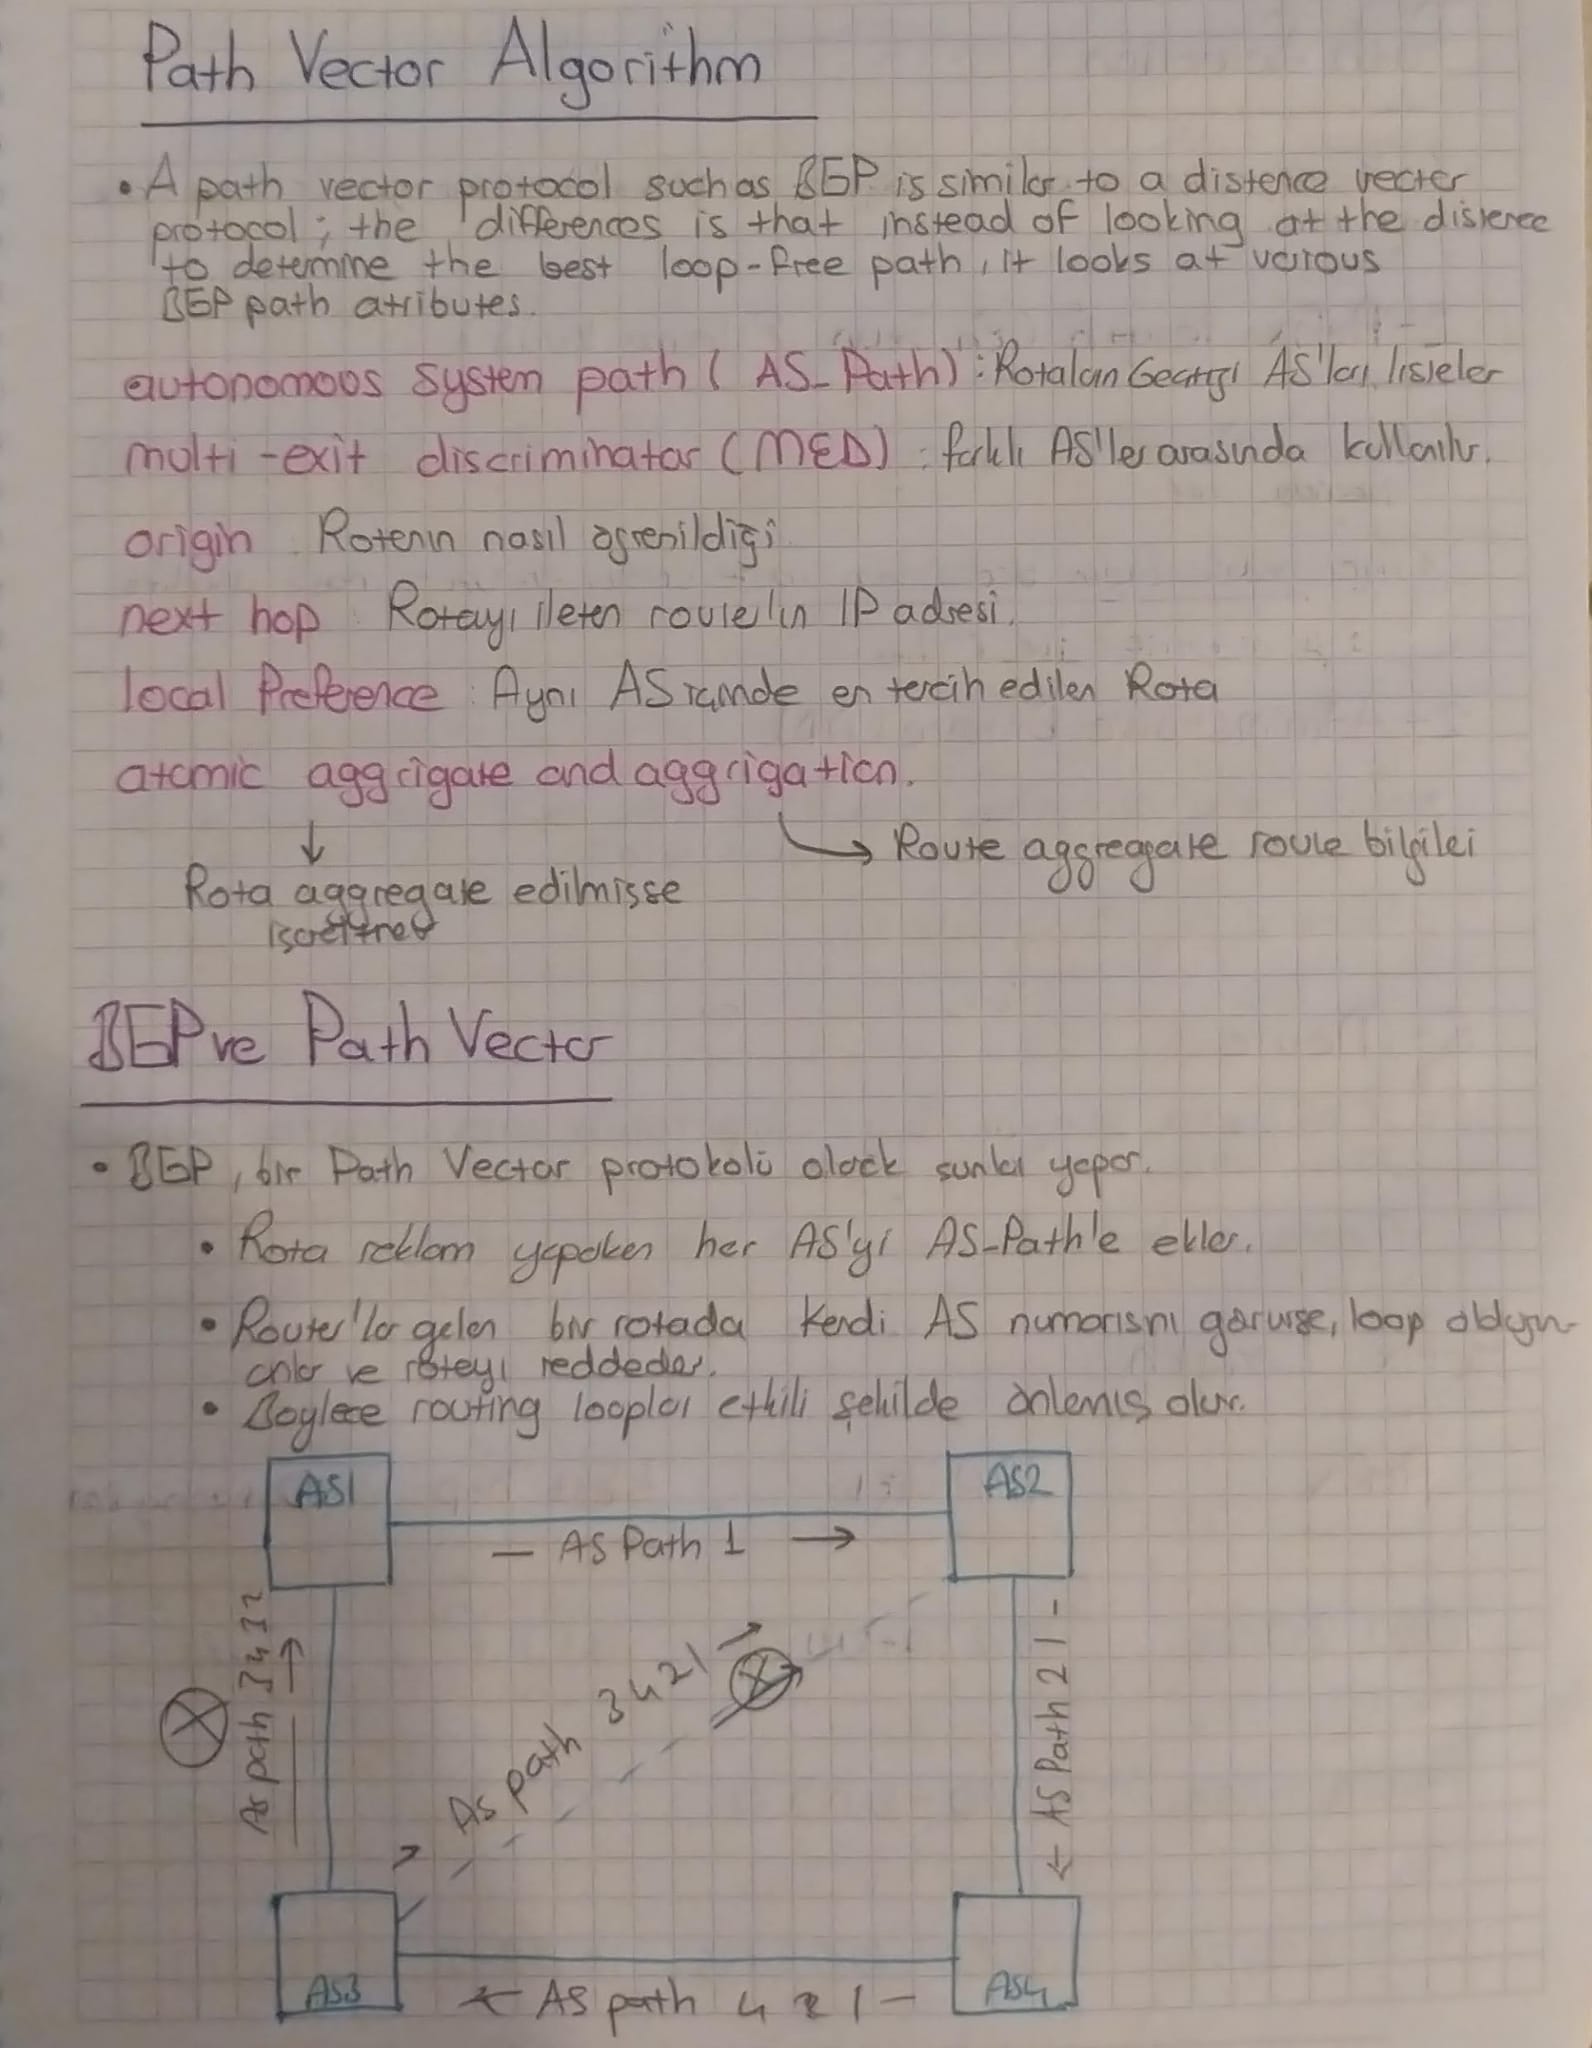 Path Vector Algorithm
• A path vector protocol such as BGP is similar to a distence vector
protocol ; the differences is that instead of looking at the distence
to detemine the best loop-free path, it looks at varous
BGP path atributes.
autonomoos system path ( AS_Path) : Rotaların Geçtiği AS'ları listeler
multi-exit discriminator (MED) : farklı AS'ler arasında kullanılır.
origin : Rotenın nasıl ögrenildiği
next hop : Rotayı ileten route'ın IP adresi.
local Preference : Aynı AS içinde en tercih edilen Rota
atomic aggrigate and aggrigation.
↓
→ Route aggregate route bilgileri
Rota aggregate edilmisse
BGP ve Path Vector
• BGP, bir Path Vector protokolü olarak sunları yapar.
• Rota reklam yaparken her AS'yi AS-Path'e ekler.
• Router'lar gelen bir rotada kendi AS numarisnı görürse, loop oldugun
anlar ve roteyı reddeder.
• Boylece routing loopları etkili şekilde önlemiş olur.
AS1
AS2
— AS Path 1 →
As path 3421 →
As path 3421 →
← AS Path 21 -
AS3
AS4
← AS path 4 2 1 -